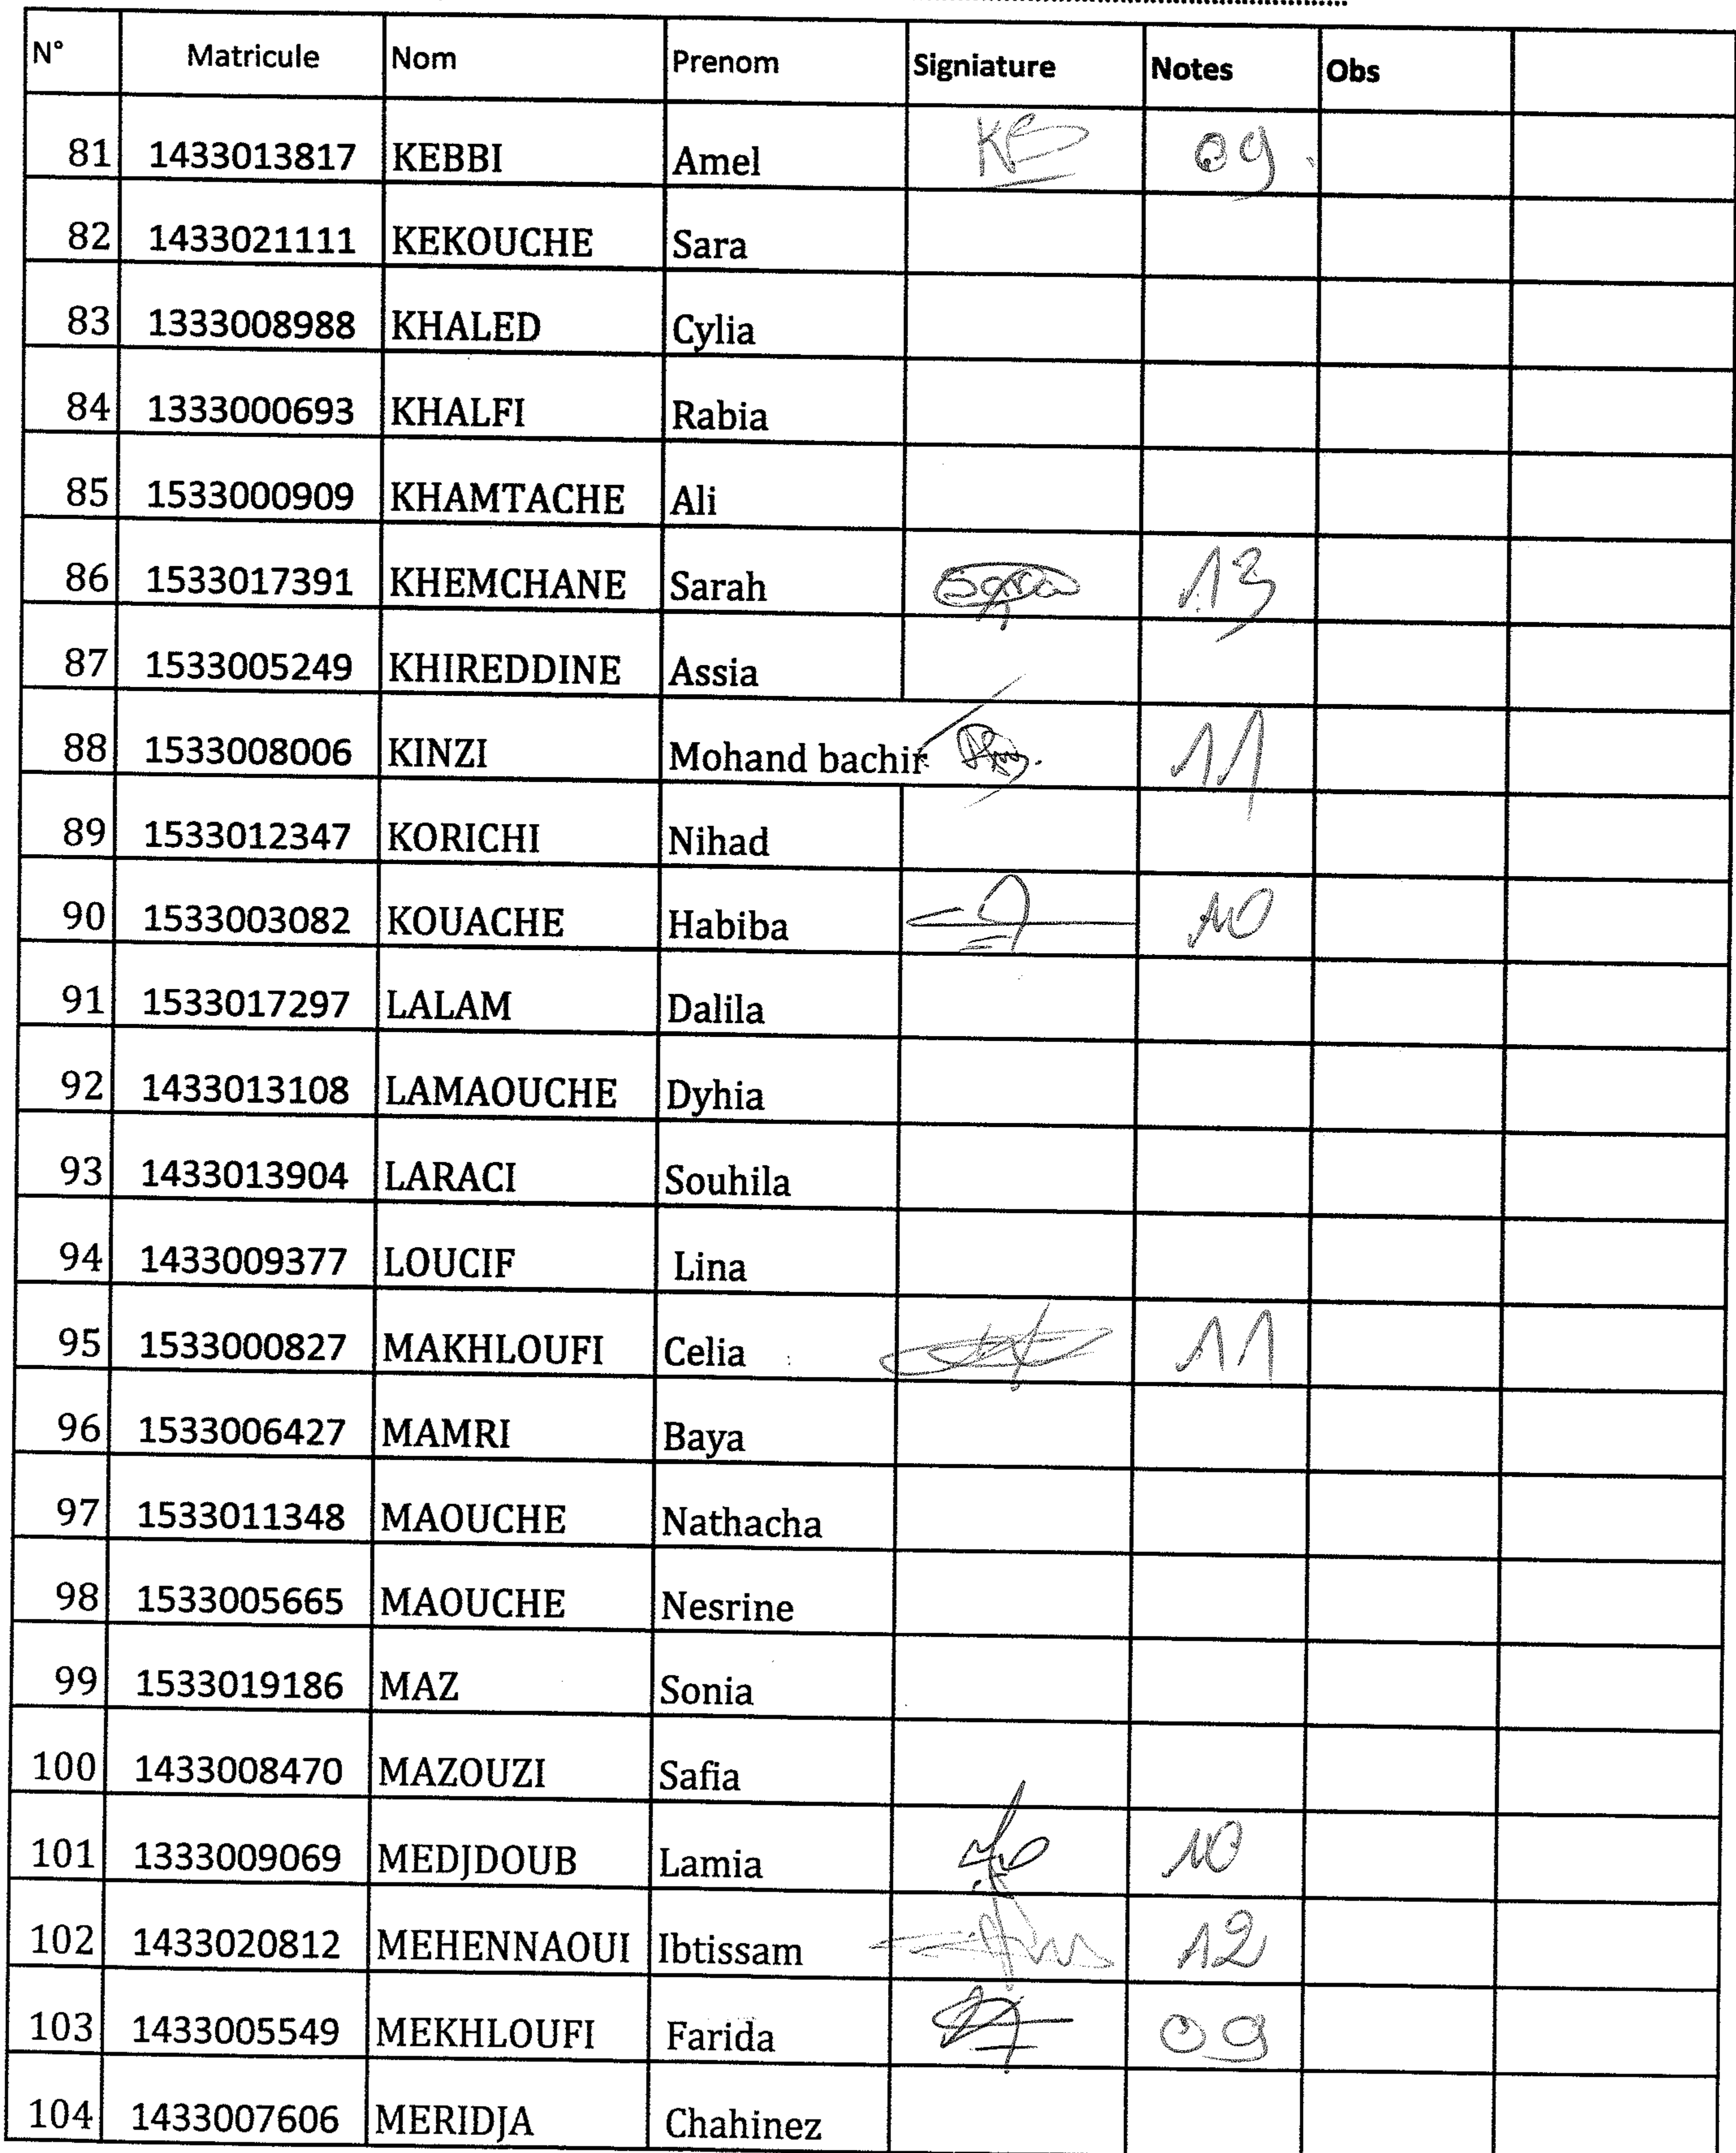 N° Matricule Nom Prenom Signiature Notes Obs
81 1433013817 KEBBI Amel KB 09
82 1433021111 KEKOUCHE Sara
83 1333008988 KHALED Cylia
84 1333000693 KHALFI Rabia
85 1533000909 KHAMTACHE Ali
86 1533017391 KHEMCHANE Sarah 13
87 1533005249 KHIREDDINE Assia
88 1533008006 KINZI Mohand bachir 11
89 1533012347 KORICHI Nihad
90 1533003082 KOUACHE Habiba 10
91 1533017297 LALAM Dalila
92 1433013108 LAMAOUCHE Dyhia
93 1433013904 LARACI Souhila
94 1433009377 LOUCIF Lina
95 1533000827 MAKHLOUFI Celia 11
96 1533006427 MAMRI Baya
97 1533011348 MAOUCHE Nathacha
98 1533005665 MAOUCHE Nesrine
99 1533019186 MAZ Sonia
100 1433008470 MAZOUZI Safia
101 1333009069 MEDJDOUB Lamia 10
102 1433020812 MEHENNAOUI Ibtissam 12
103 1433005549 MEKHLOUFI Farida 09
104 1433007606 MERIDJA Chahinez